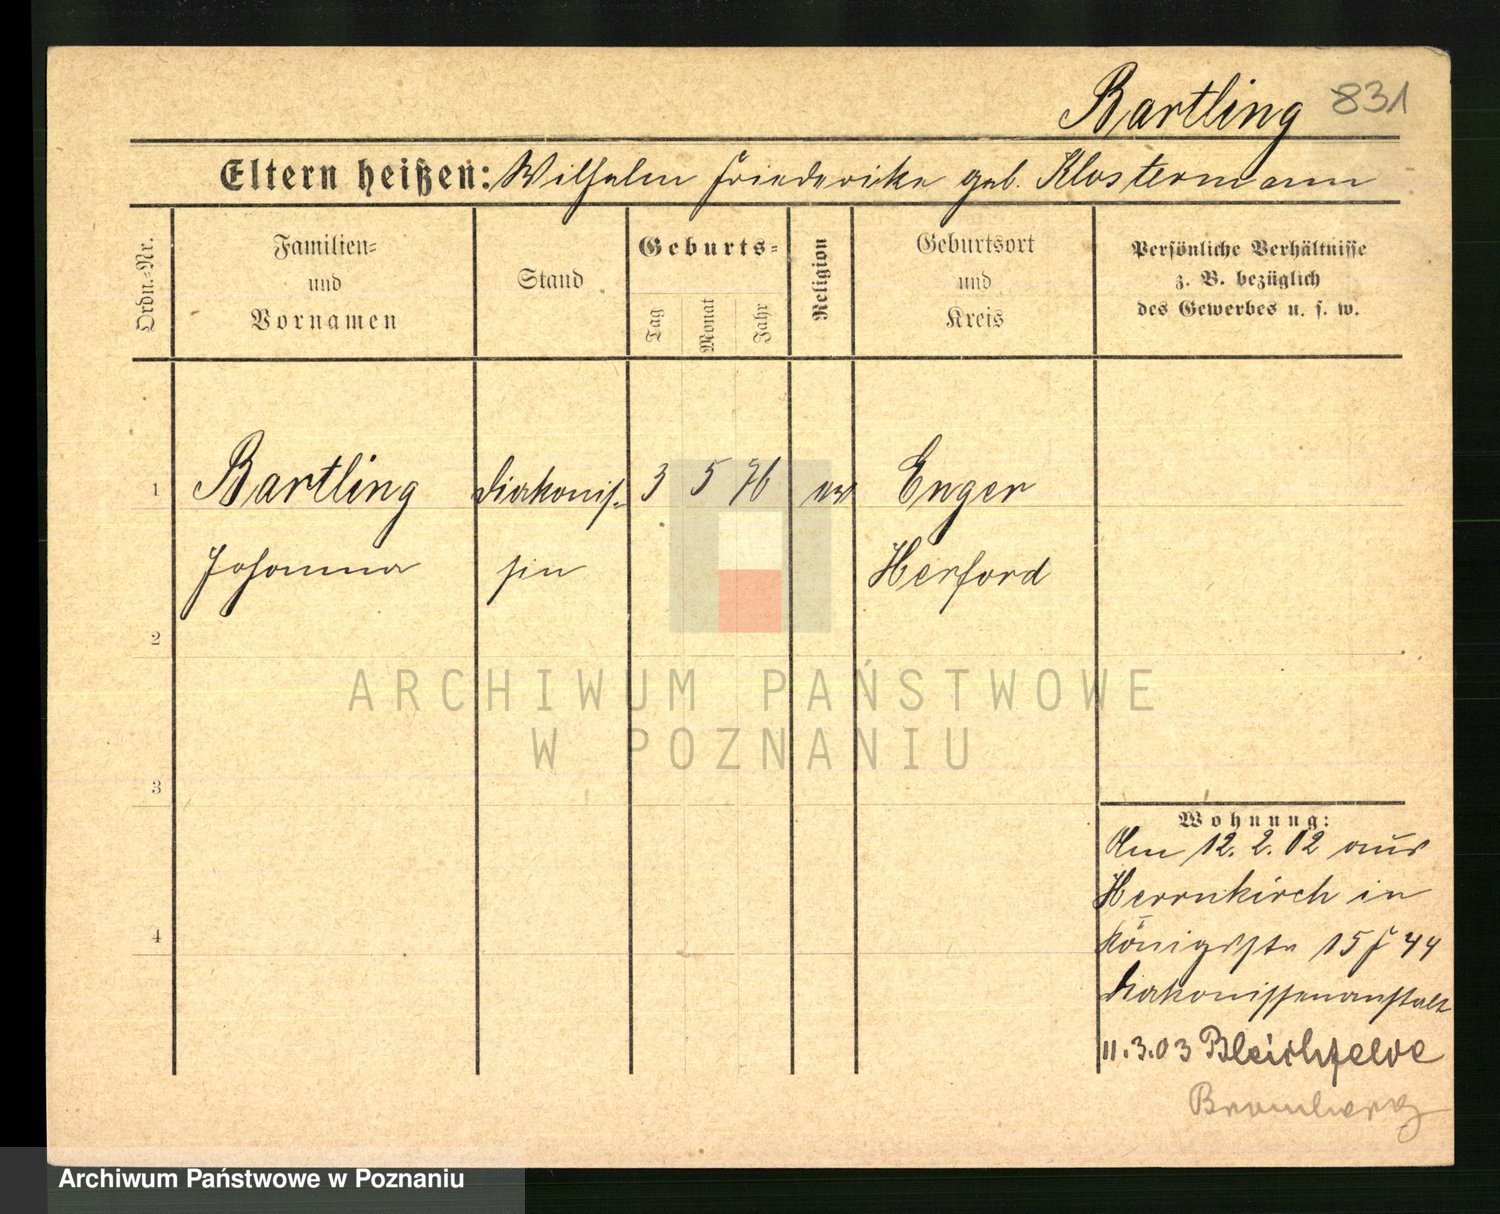 Bartling 831
Eltern heißen: Wilhelm Friederike geb. Klostermann
Ordn.-Nr.
Familien=
und
Vornamen
Stand
Geburts=
Tag
Monat
Jahr
Religion
Geburtsort
und
Kreis
Persönliche Verhältnisse
z. B. bezüglich
des Gewerbes u. s. w.
1 Bartling Diakonis= 3 5 76 ev Enger
Johanna sin Herford
2
3
4
Wohnung:
Am 12. 2. 02 aus
Herrnkirch in
Königstr 15
Diakonissenanstalt
11.3.03 Bleichfelde
Bromberg
ARCHIWUM PAŃSTWOWE
W POZNANIU
Archiwum Państwowe w Poznaniu